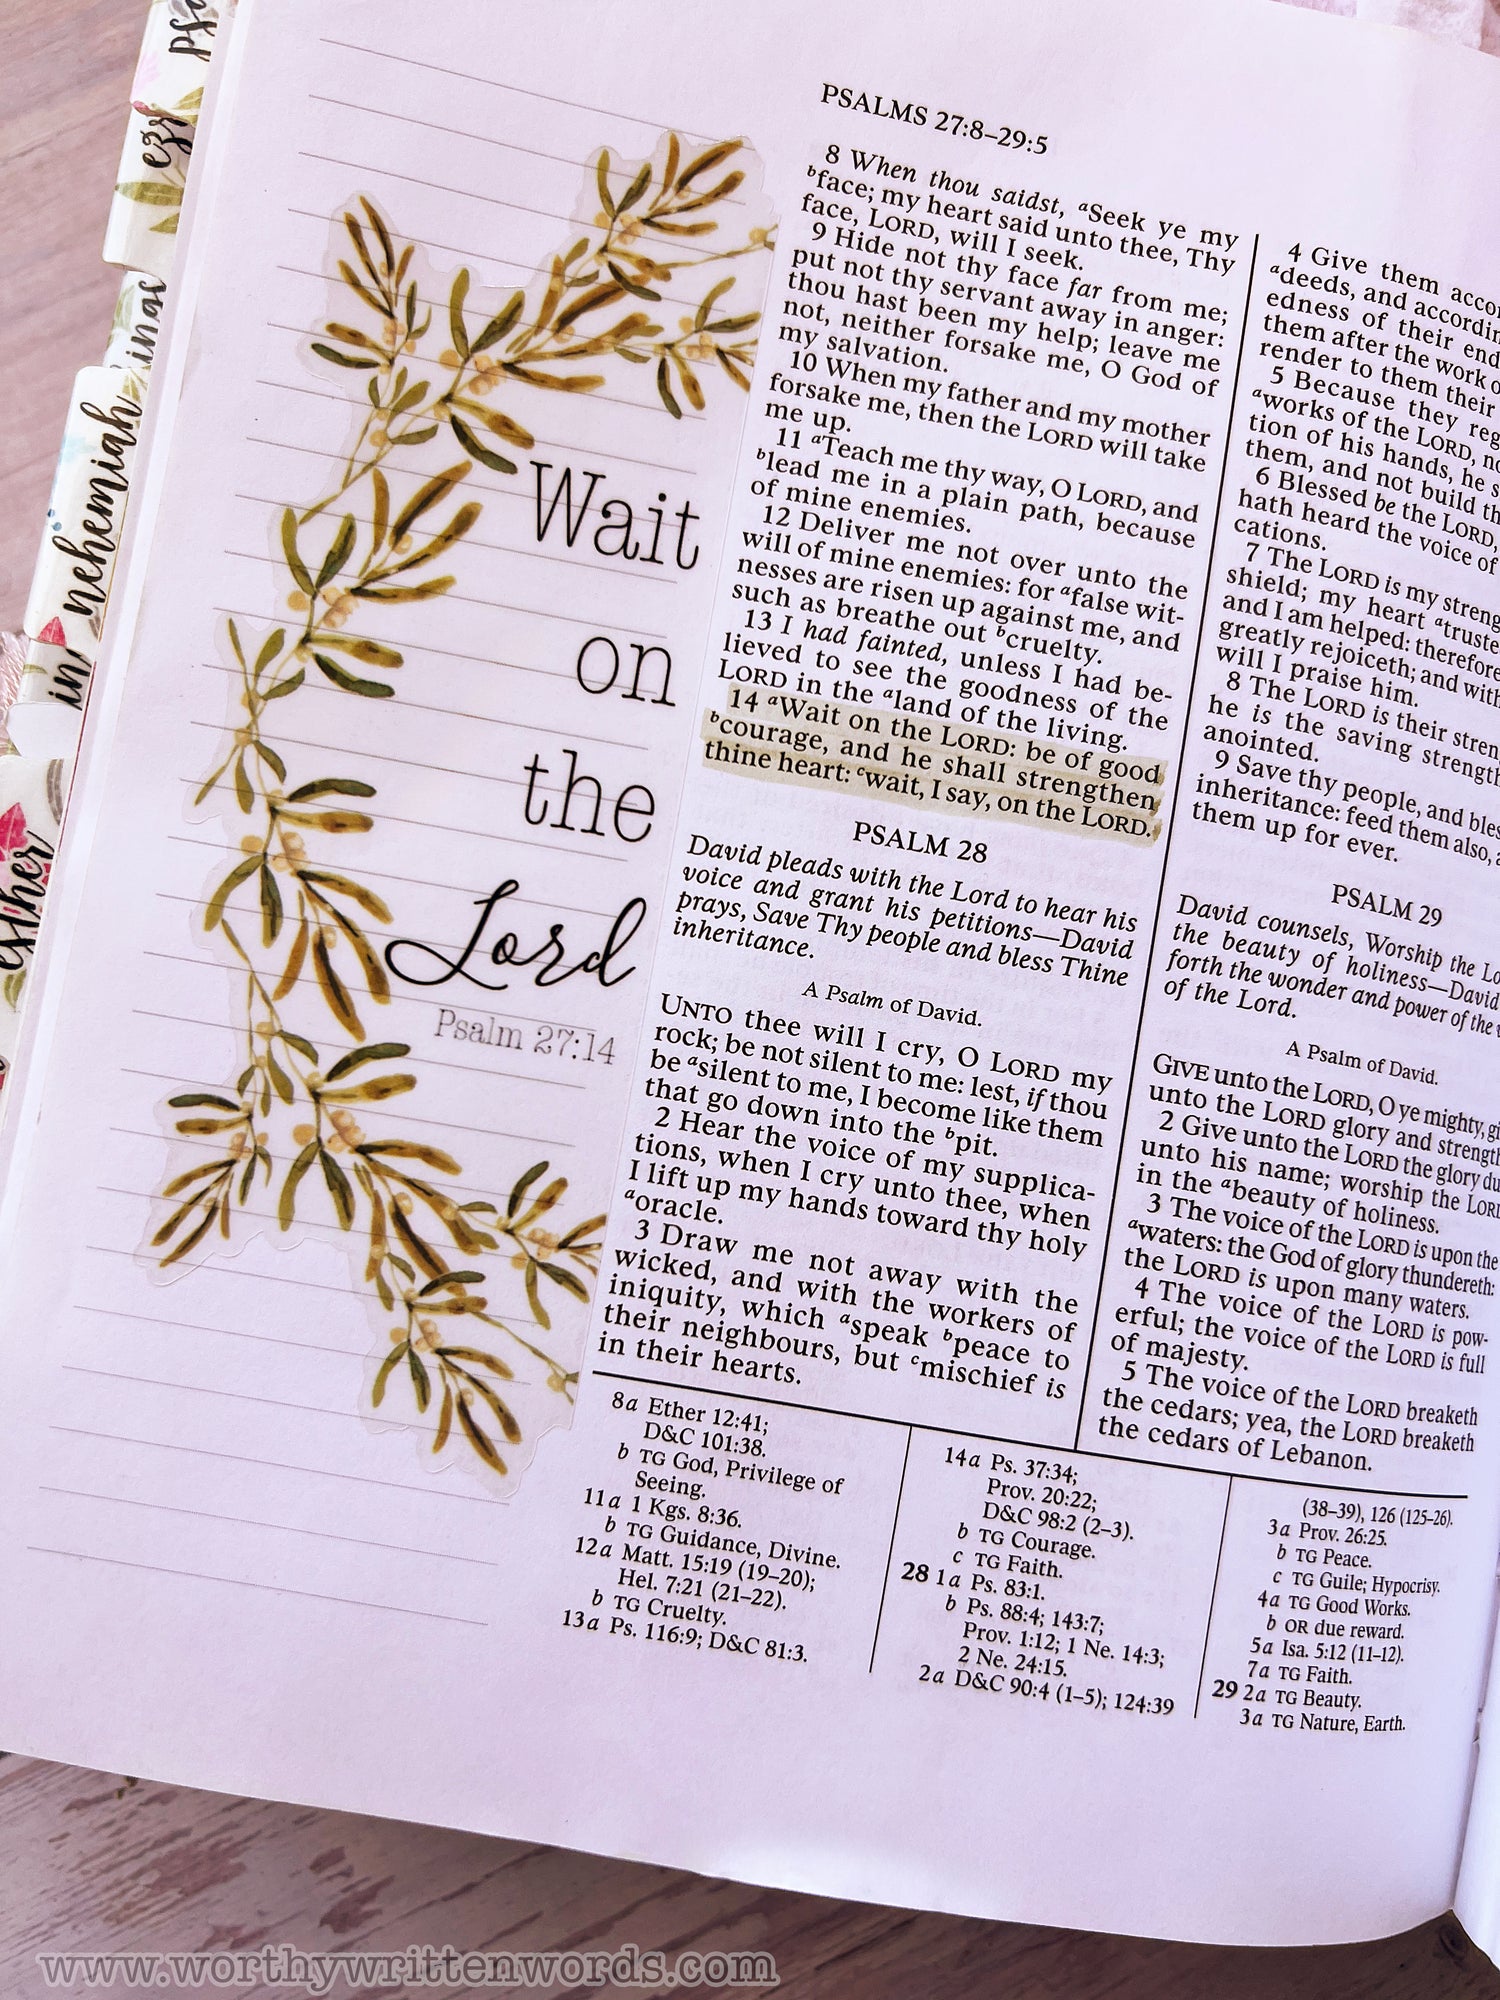 psa
ezr
kings
nehemiah
esther
Wait
on
the
Lord
Psalm 27:14
PSALMS 27:8–29:5
8 When thou saidst, aSeek ye my
bface; my heart said unto thee, Thy
face, LORD, will I seek.
9 Hide not thy face far from me;
put not thy servant away in anger:
thou hast been my help; leave me
not, neither forsake me, O God of
my salvation.
10 When my father and my mother
forsake me, then the LORD will take
me up.
11 aTeach me thy way, O LORD, and
blead me in a plain path, because
of mine enemies.
12 Deliver me not over unto the
will of mine enemies: for afalse wit-
nesses are risen up against me, and
such as breathe out bcruelty.
13 I had fainted, unless I had be-
lieved to see the goodness of the
LORD in the aland of the living.
14 aWait on the LORD: be of good
bcourage, and he shall strengthen
thine heart: cwait, I say, on the LORD.
PSALM 28
David pleads with the Lord to hear his
voice and grant his petitions—David
prays, Save Thy people and bless Thine
inheritance.
A Psalm of David.
UNTO thee will I cry, O LORD my
rock; be not silent to me: lest, if thou
be asilent to me, I become like them
that go down into the bpit.
2 Hear the voice of my supplica-
tions, when I cry unto thee, when
I lift up my hands toward thy holy
aoracle.
3 Draw me not away with the
wicked, and with the workers of
iniquity, which aspeak bpeace to
their neighbours, but cmischief is
in their hearts.
4 Give them accor
adeeds, and accordin
edness of their end
them after the work o
render to them their
5 Because they reg
aworks of the LORD, no
tion of his hands, he s
them, and not build th
6 Blessed be the LORD,
hath heard the voice of
cations.
7 The LORD is my streng
shield; my heart atruste
and I am helped: therefore
greatly rejoiceth; and with
will I praise him.
8 The LORD is their stren
he is the saving strength
anointed.
9 Save thy people, and bles
inheritance: feed them also, a
them up for ever.
PSALM 29
David counsels, Worship the Lo
the beauty of holiness—David
forth the wonder and power of the v
of the Lord.
A Psalm of David.
GIVE unto the LORD, O ye mighty, gi
unto the LORD glory and strength
2 Give unto the LORD the glory du
unto his name; worship the LORD
in the abeauty of holiness.
3 The voice of the LORD is upon the
awaters: the God of glory thundereth:
the LORD is upon many waters.
4 The voice of the LORD is pow-
erful; the voice of the LORD is full
of majesty.
5 The voice of the LORD breaketh
the cedars; yea, the LORD breaketh
the cedars of Lebanon.
8a Ether 12:41;
D&C 101:38.
b TG God, Privilege of
Seeing.
11a 1 Kgs. 8:36.
b TG Guidance, Divine.
12a Matt. 15:19 (19–20);
Hel. 7:21 (21–22).
b TG Cruelty.
13a Ps. 116:9; D&C 81:3.
14a Ps. 37:34;
Prov. 20:22;
D&C 98:2 (2–3).
b TG Courage.
c TG Faith.
28 1a Ps. 83:1.
b Ps. 88:4; 143:7;
Prov. 1:12; 1 Ne. 14:3;
2 Ne. 24:15.
2a D&C 90:4 (1–5); 124:39
(38–39), 126 (125–26).
3a Prov. 26:25.
b TG Peace.
c TG Guile; Hypocrisy.
4a TG Good Works.
b OR due reward.
5a Isa. 5:12 (11–12).
7a TG Faith.
29 2a TG Beauty.
3a TG Nature, Earth.
www.worthywrittenwords.com